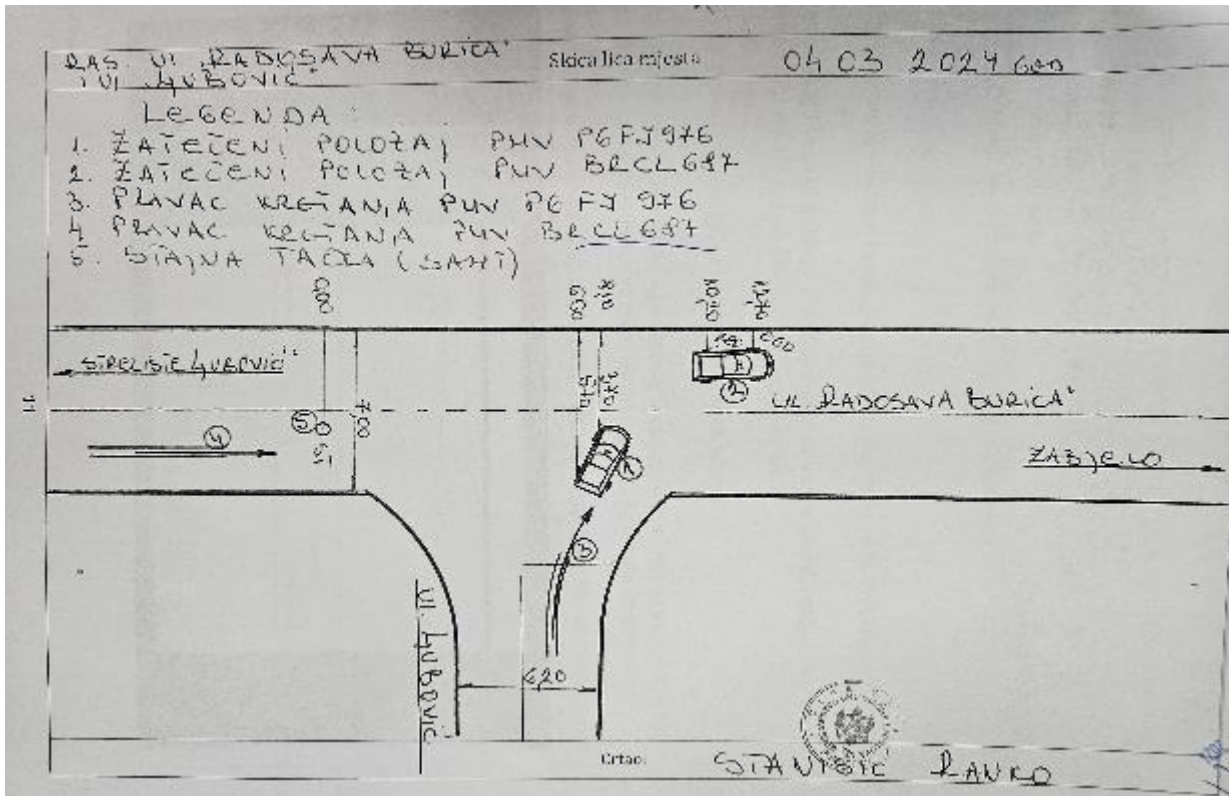 RAS. Ul "RADOSAVA BURIĆA"
I Ul "LJUBOVIĆ"
Skica lica mjesta
04 03 2024 GOD
LEGENDA:
1. ZATEČENI POLOŽAJ PMV PGFJ976
2. ZATEČENI POLOŽAJ PMV BRCL687
3. PRAVAC KRETANJA PMV PG FJ 976
4 PRAVAC KRETANJA PMV BRCL687
5. STAJNA TAČKA (ŠAHT)
0,0
6,00
8,10
10,10
STRELIŠTE LJUBOVIĆ"
3,70
5,70
2
UL RADOSAVA BURIĆA"
11
4
5
7,00
1
ZABJELO
3
Ul. LJUBOVIĆ
6,20
Crtao:
STANIŠIĆ RANKO